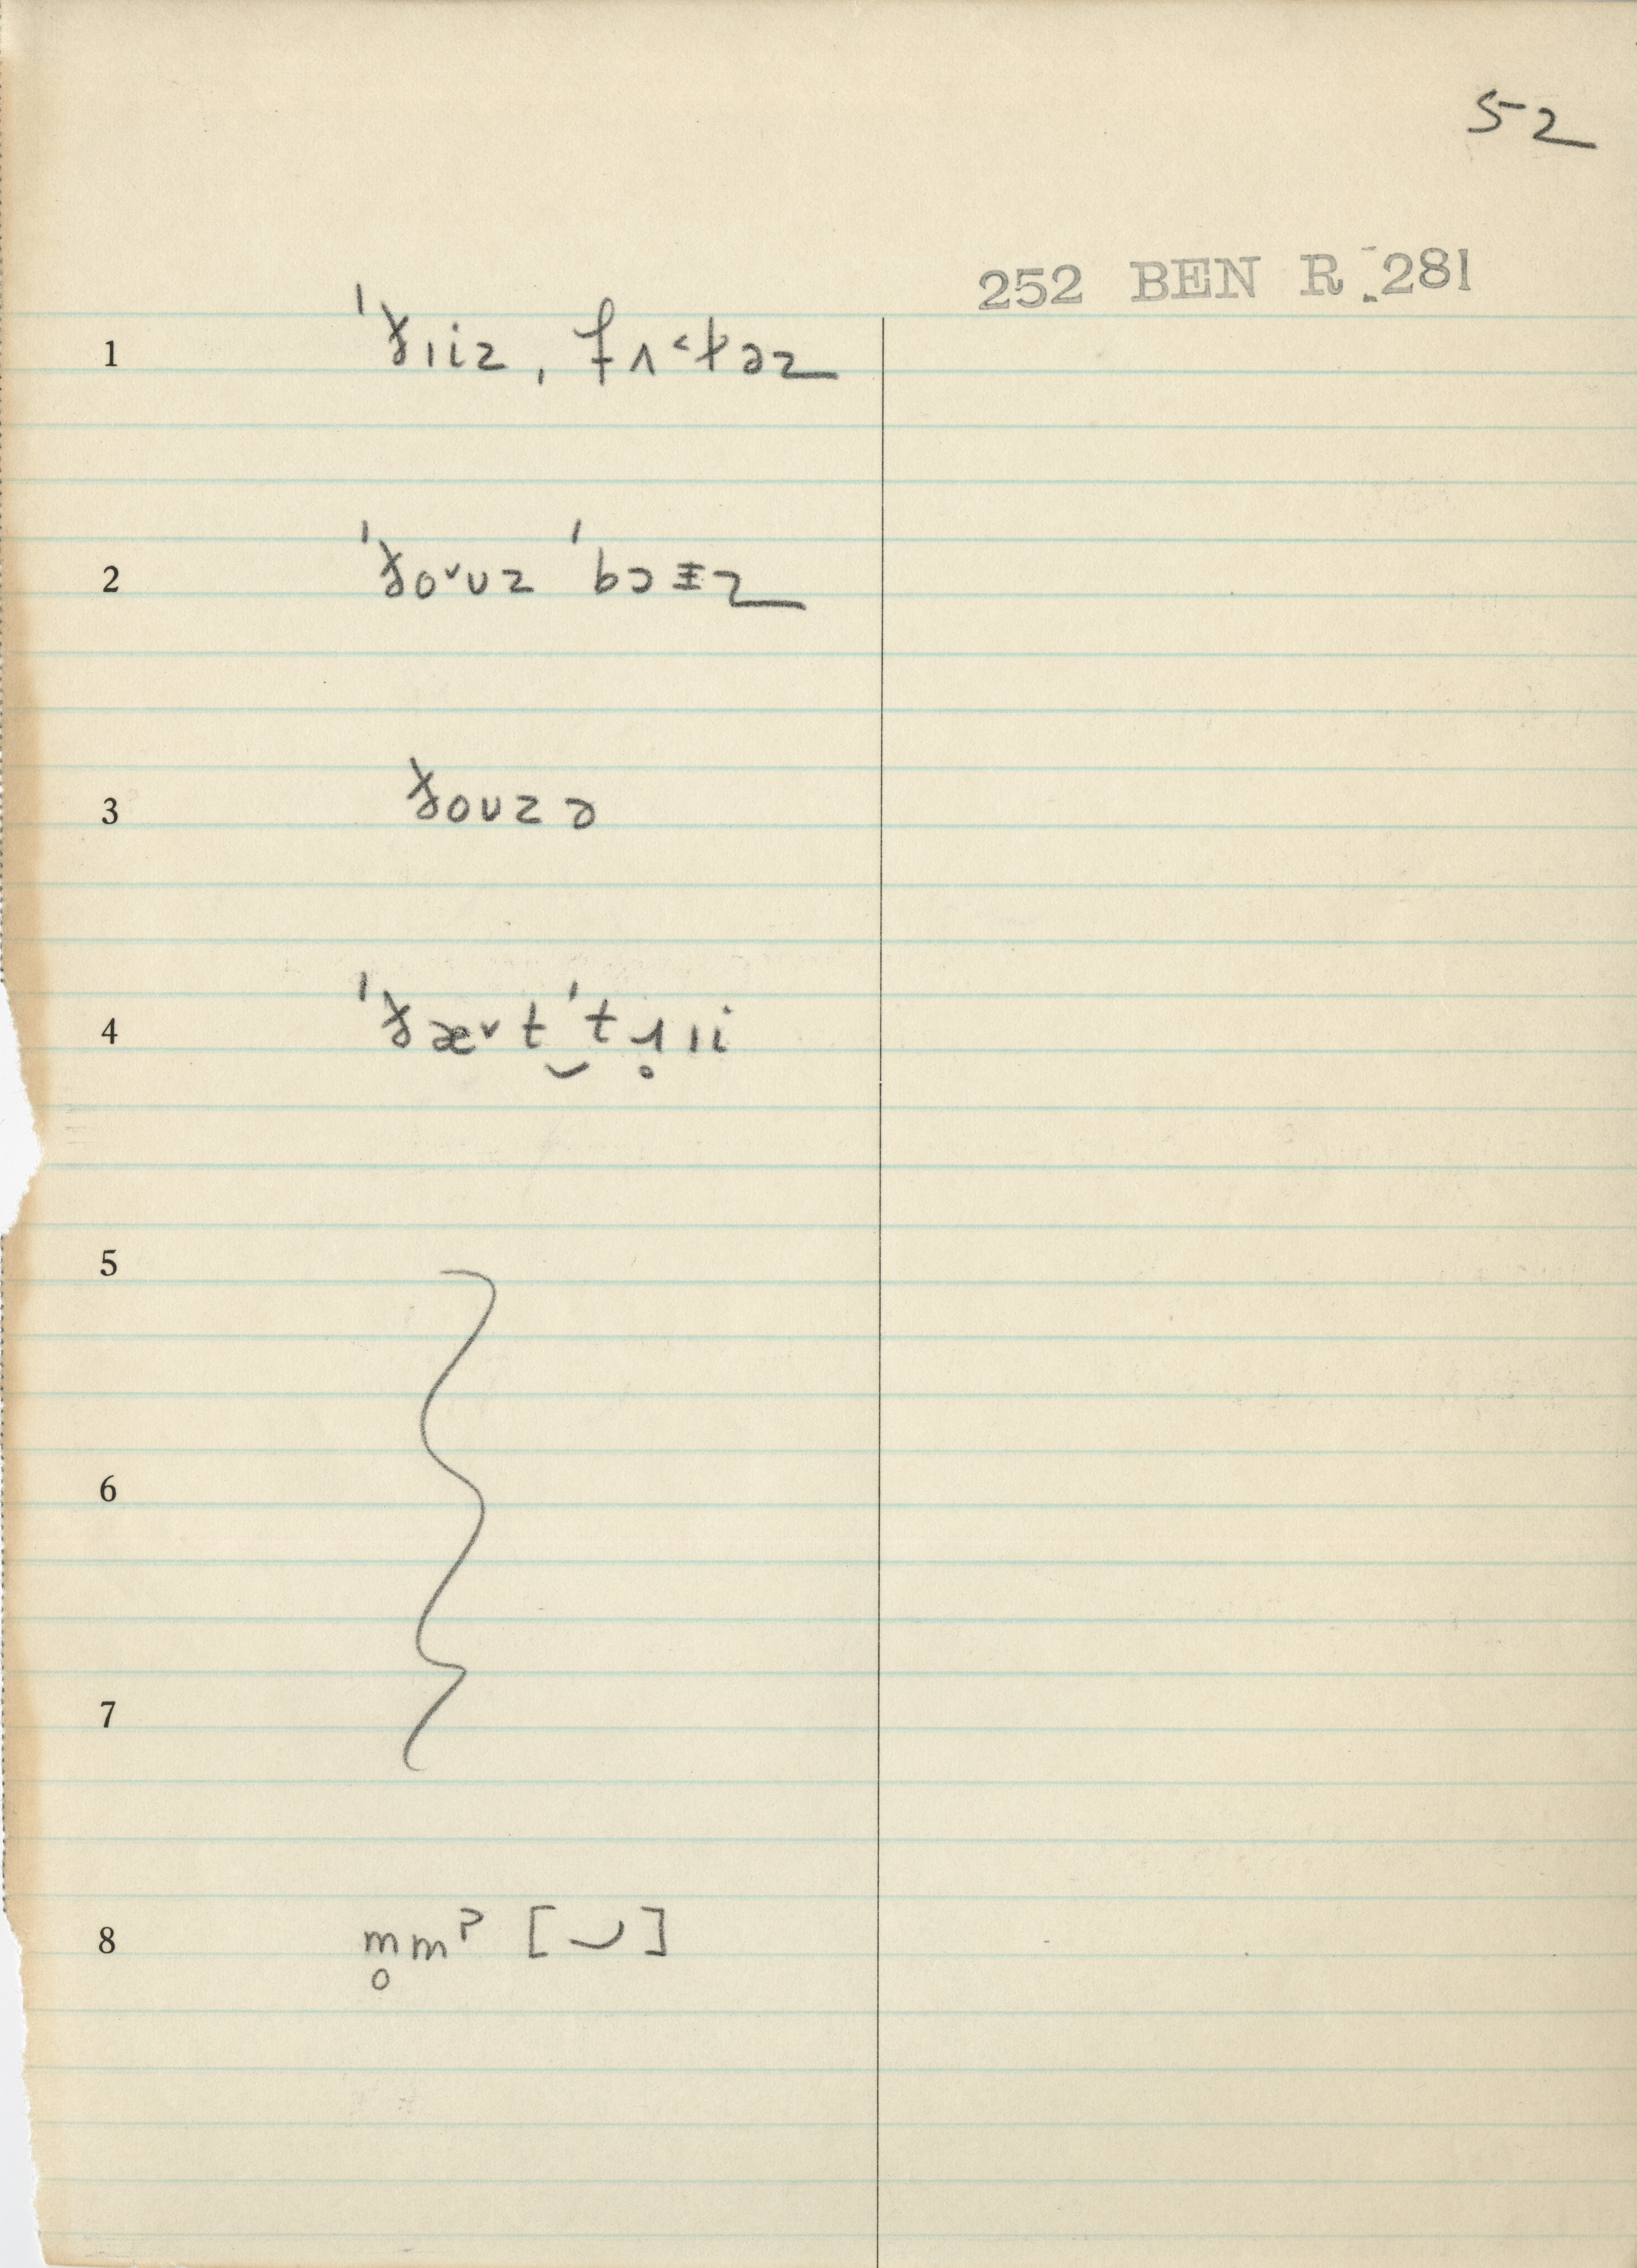 52
252 BEN R. 281
1 ˈðɪiz, fʌ˂t̵əz
2 ˈðo˅ʊz ˈbɔɪz
3 ðoʊzə
4 ˈðæ˅t‿ˈtɹ̥ɪi
5
6
7
8 m̥mˀ [◡]